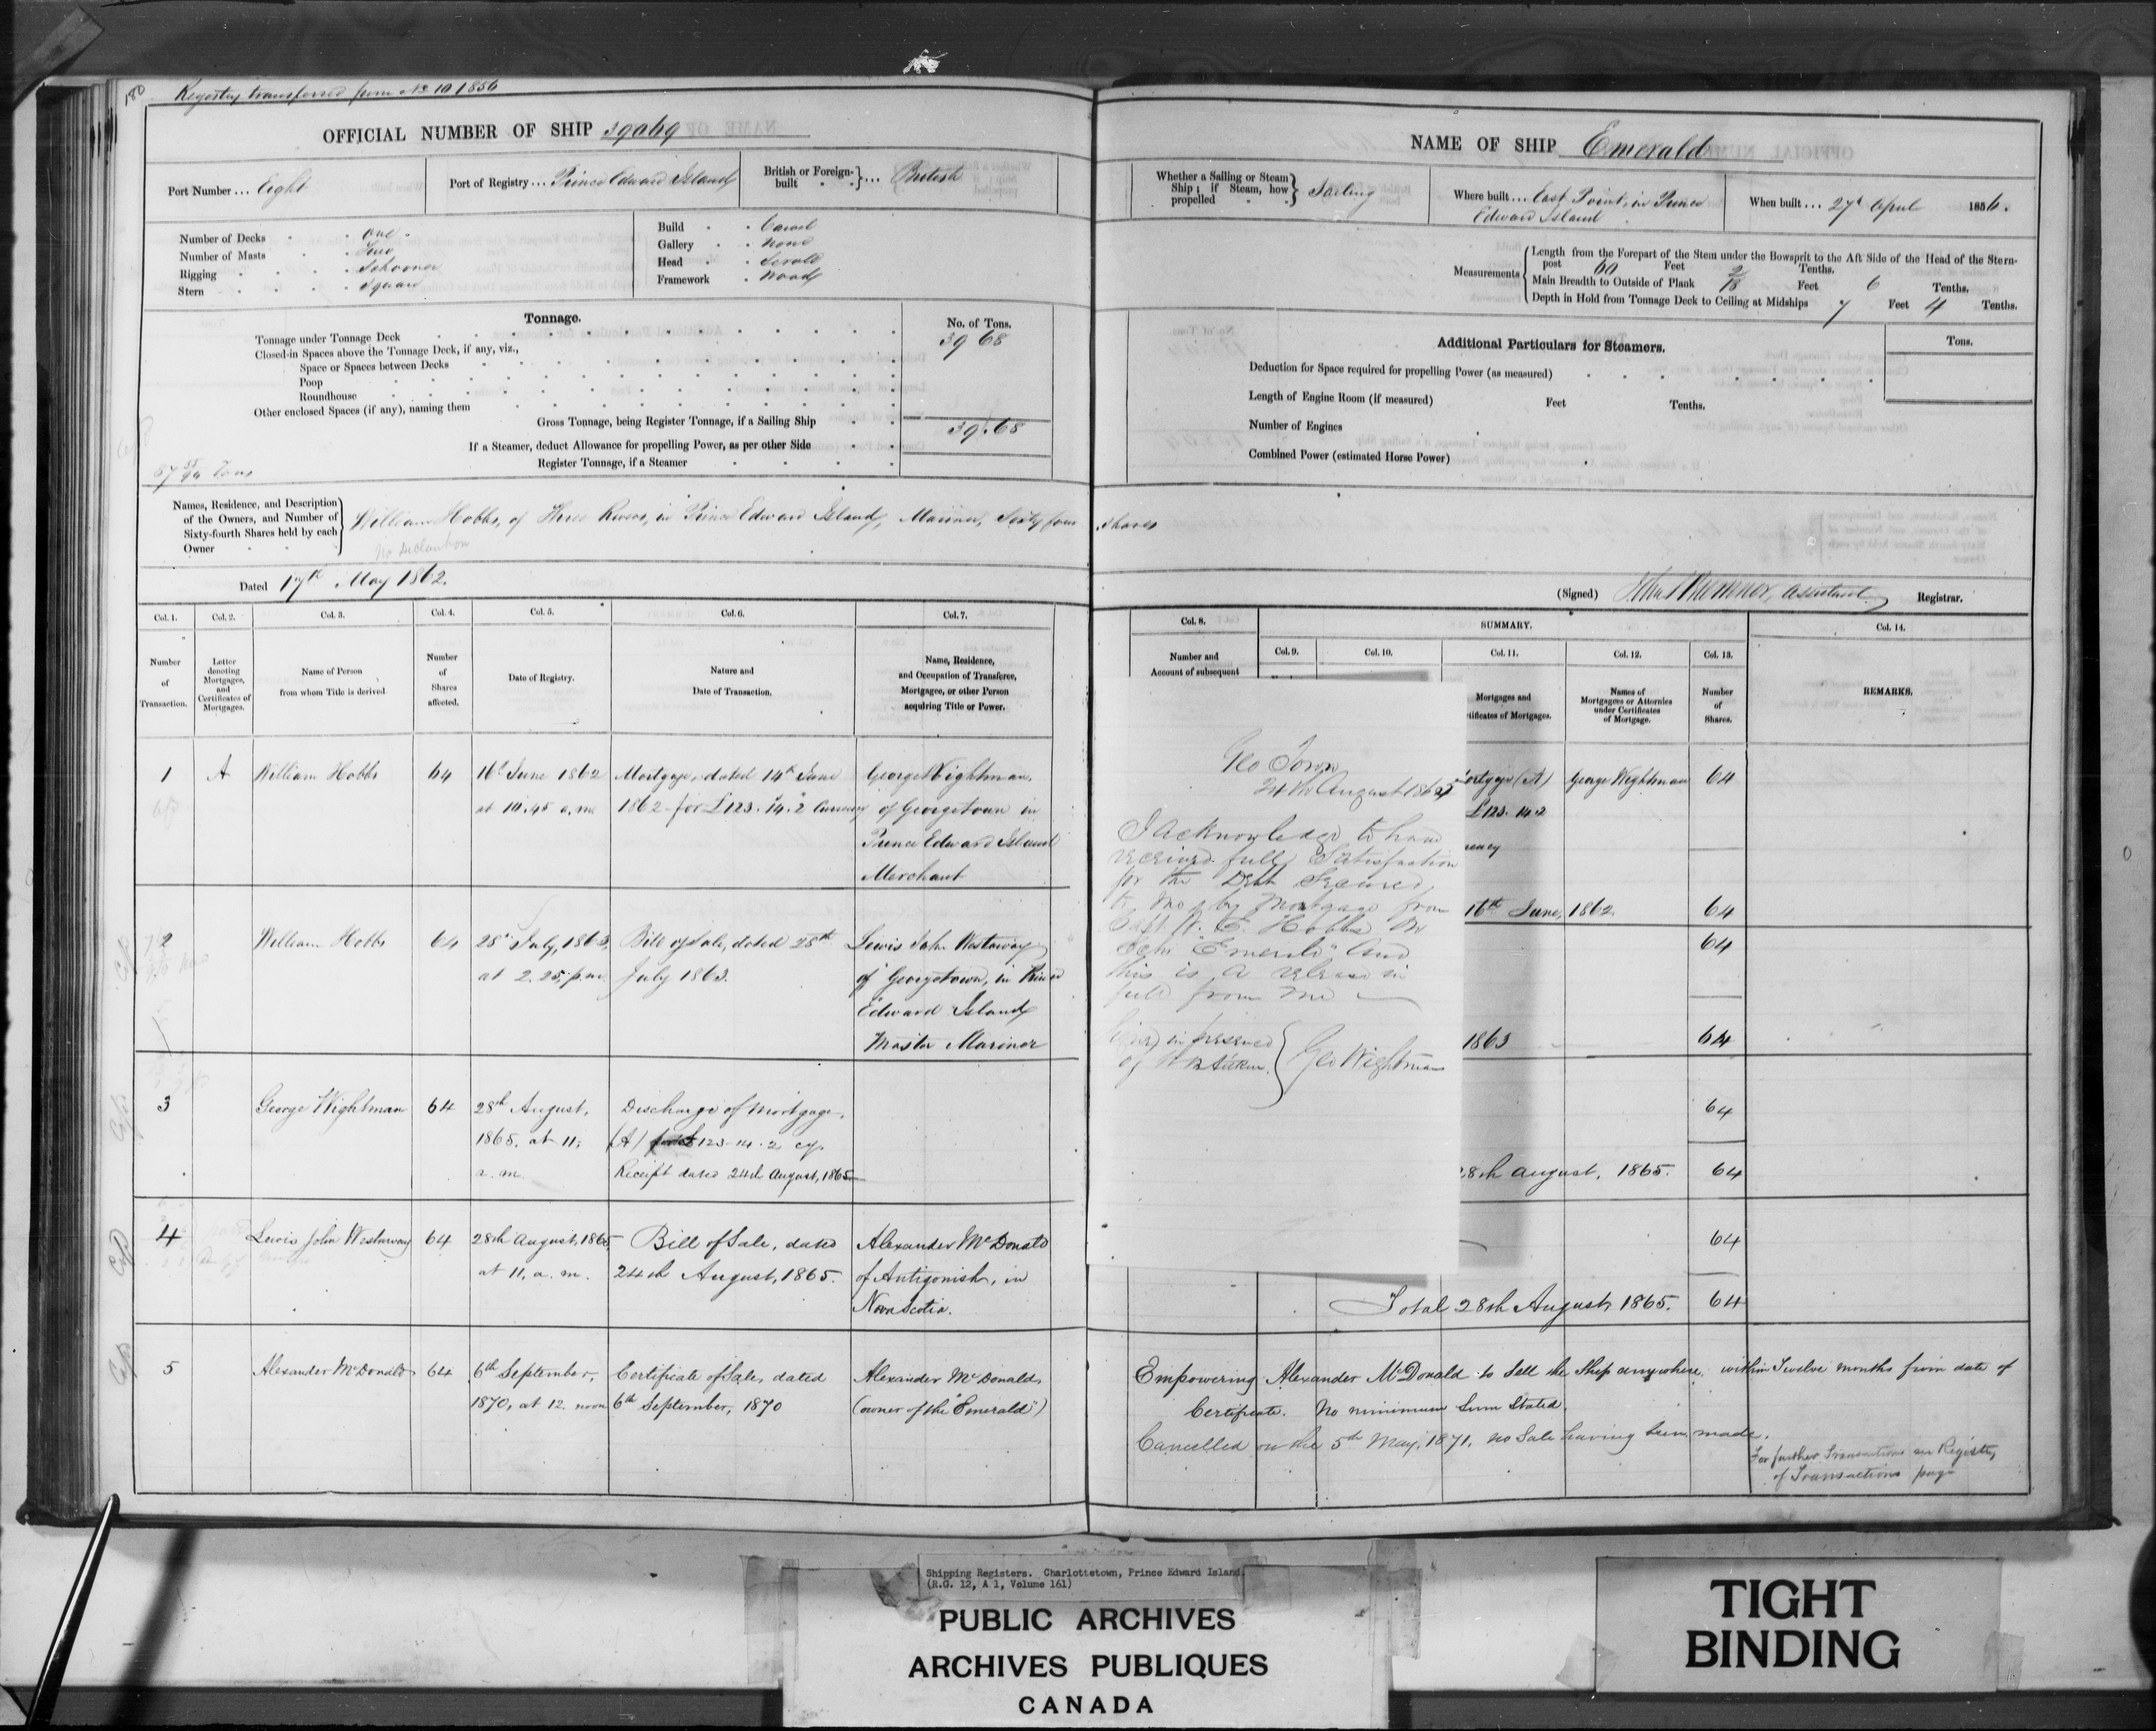 180
Registry transferred from No 10 1856
OFFICIAL NUMBER OF SHIP 39069
Port Number ... Eight
Port of Registry ... Prince Edward Island
British or Foreign-built } ... British
Number of Decks One
Number of Masts Two
Rigging Schooner
Stern Square
Build Carvel
Gallery None
Head Scroll
Framework Wood
Tonnage.
No. of Tons.
Tonnage under Tonnage Deck 39 68
Closed-in Spaces above the Tonnage Deck, if any, viz.,
Space or Spaces between Decks
Poop
Roundhouse
Other enclosed Spaces (if any), naming them
Gross Tonnage, being Register Tonnage, if a Sailing Ship 39.68
If a Steamer, deduct Allowance for propelling Power, as per other Side
Register Tonnage, if a Steamer
Tons
Names, Residence, and Description
of the Owners, and Number of
Sixty-fourth Shares held by each
Owner
William Hobbs, of Three Rivers, in Prince Edward Island, Mariner, Sixty four shares
No declaration
Dated 17th May 1862.
NAME OF SHIP Emerald
Whether a Sailing or Steam
Ship; if Steam, how
propelled } Sailing
Where built ... East Point, in Prince
Edward Island
When built ... 27th April 1854.
Measurements
Length from the Forepart of the Stem under the Bowsprit to the Aft Side of the Head of the Stern-
post 60 Feet 2 Tenths.
Main Breadth to Outside of Plank 18 Feet 6 Tenths.
Depth in Hold from Tonnage Deck to Ceiling at Midships 7 Feet 4 Tenths.
Additional Particulars for Steamers.
Tons.
Deduction for Space required for propelling Power (as measured)
Length of Engine Room (if measured) Feet Tenths.
Number of Engines
Combined Power (estimated Horse Power)
(Signed) Assistant Registrar.
Col. 1. Col. 2. Col. 3. Col. 4. Col. 5. Col. 6. Col. 7.
Number
of
Transaction.
Letter
denoting
Mortgages,
and
Certificates of
Mortgages.
Name of Person
from whom Title is derived.
Number
of
Shares
affected.
Date of Registry.
Nature and
Date of Transaction.
Name, Residence,
and Occupation of Transferee,
Mortgagee, or other Person
acquiring Title or Power.
Col. 8.
Number and
Account of subsequent
SUMMARY.
Col. 9. Col. 10. Col. 11. Col. 12. Col. 13.
Mortgages and
tificates of Mortgages.
Names of
Mortgagees or Attornies
under Certificates
of Mortgage.
Number
of
Shares.
Col. 14.
REMARKS.
1 A William Hobbs 64
16th June 1862
at 10.45 a.m.
Mortgage, dated 14th June
1862 for £123.14.2 Currency
George Wightman,
of Georgetown in
Prince Edward Island
Merchant
ortgage (A) George Wightman 64
£123.14.2
rency
16th June, 1862 64
2 William Hobbs 64
28th July, 1863,
at 2.25, p.m.
Bill of Sale, dated 25th
July 1863.
Lewis John Westaway
of Georgetown, in Prince
Edward Island
Master Mariner
64
1863 64
3 George Wightman 64
28th August,
1865, at 11,
a.m.
Discharge of Mortgage,
(A) £123-14-2 cy.
Receipt dated 24th August, 1865
64
28th August, 1865. 64
4 Lewis John Westaway 64
28th August, 1865,
at 11, a.m.
Bill of Sale, dated
24th August, 1865.
Alexander McDonald
of Antigonish, in
Nova Scotia.
64
Total 28th August, 1865. 64
5 Alexander McDonald 64
6th September,
1870, at 12 noon
Certificate of Sale, dated
6th September, 1870
Alexander McDonald,
(owner of the "Emerald")
Empowering Alexander McDonald to Sell the Ship anywhere, within Twelve months from date of
Certificate. No minimum Sum Stated.
Cancelled on the 5th May, 1871, no Sale having been made.
For further Transactions see Register
of Transactions page
Geo Town
24th August 1865
I acknowledge to have
received full Satisfaction
for the Debt Secured
to me by Mortgage from
Capt W. E. Hobbs on
Schr "Emerald" and
this is a release in
full from me
Signed in presence
of Aitken. } Geo Wightman
Shipping Registers. Charlottetown, Prince Edward Island
(R.G. 12, A 1, Volume 161)
PUBLIC ARCHIVES
ARCHIVES PUBLIQUES
CANADA
TIGHT
BINDING